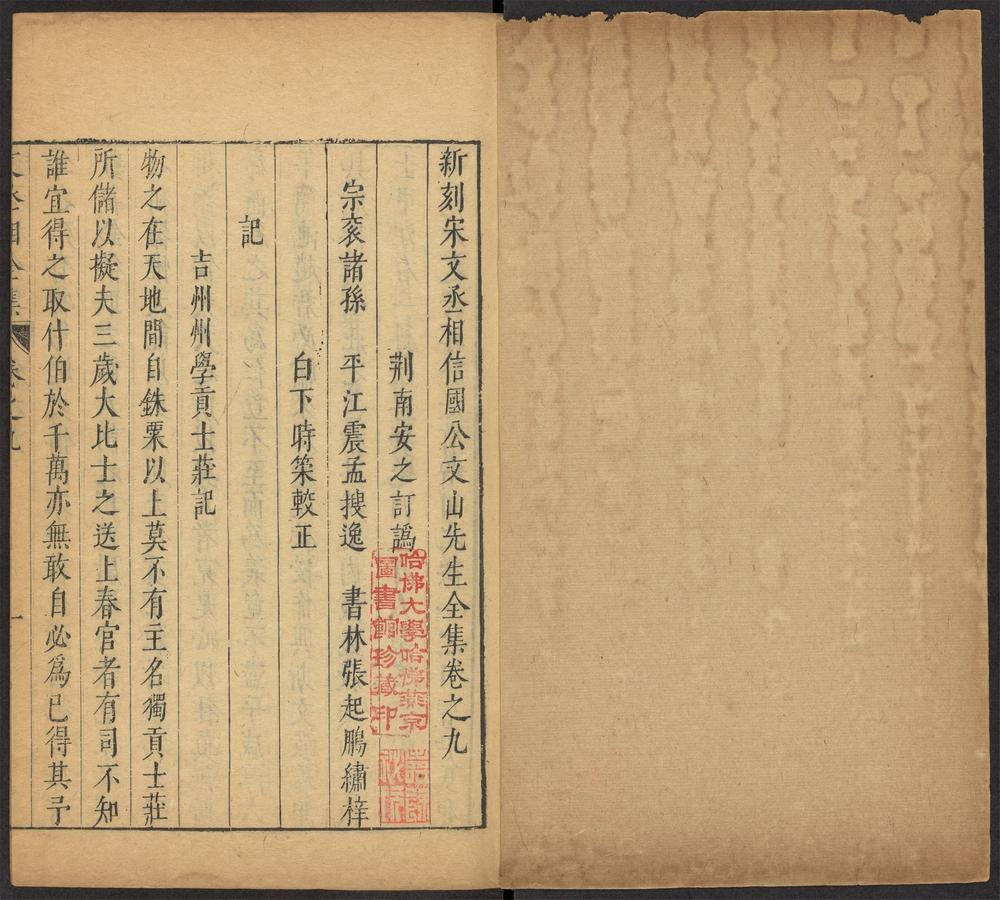 新刻宋文丞相信國公文山先生全集卷之九
荆南安之訂譌
宗衮諸孫　平江震孟搜逸　書林張起鵬繡梓
白下時築較正
記
吉州州學貢士莊記
物之在天地間自銖粟以上莫不有主名獨貢士莊
所儲以擬夫三歲大比士之送上春官者有司不知
誰宜得之取什伯於千萬亦無敢自必爲已得其予
卷之九
一
哈佛大學哈佛燕京
圖書館珍藏印